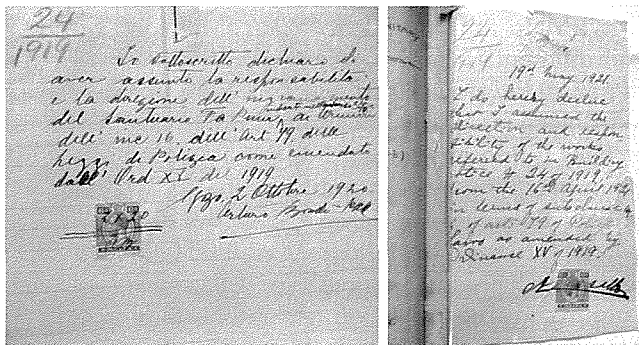 24
1919
Io sottoscritto dichiaro di
aver assunto la responsabilità
e la direzione dell'
del Santuario Ta Pinu,
dell' inc 16 dell' Art 79 delle
Leggi di Polizia come emendato
dall' Ord XV del 1919
2 Ottobre 1920
Arturo
19th May 1921.
I do hereby declare
that I assumed the
direction and respon
sibility of the works
referred to in Building
Notice No 24 of 1919
from the 16th April 1921
in terms of
of art. 79 of
Laws as amended by
Ordinance XV of 1919.